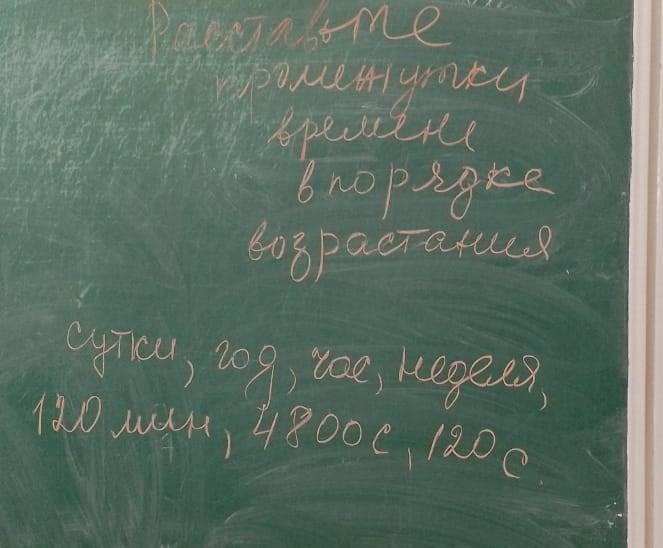 Расставьте
промежутки
времени
в порядке
возрастания
сутки, год, час, неделя,
120 мин, 4800 с, 120 с.